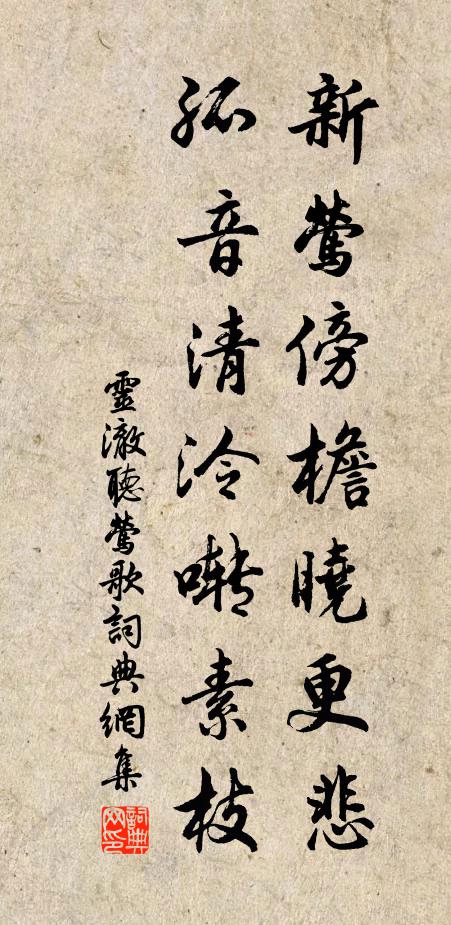 新鶯傍檐曉更悲
孤音清泠囀素枝
靈澈聽鶯歌詞典網集
詞典網印